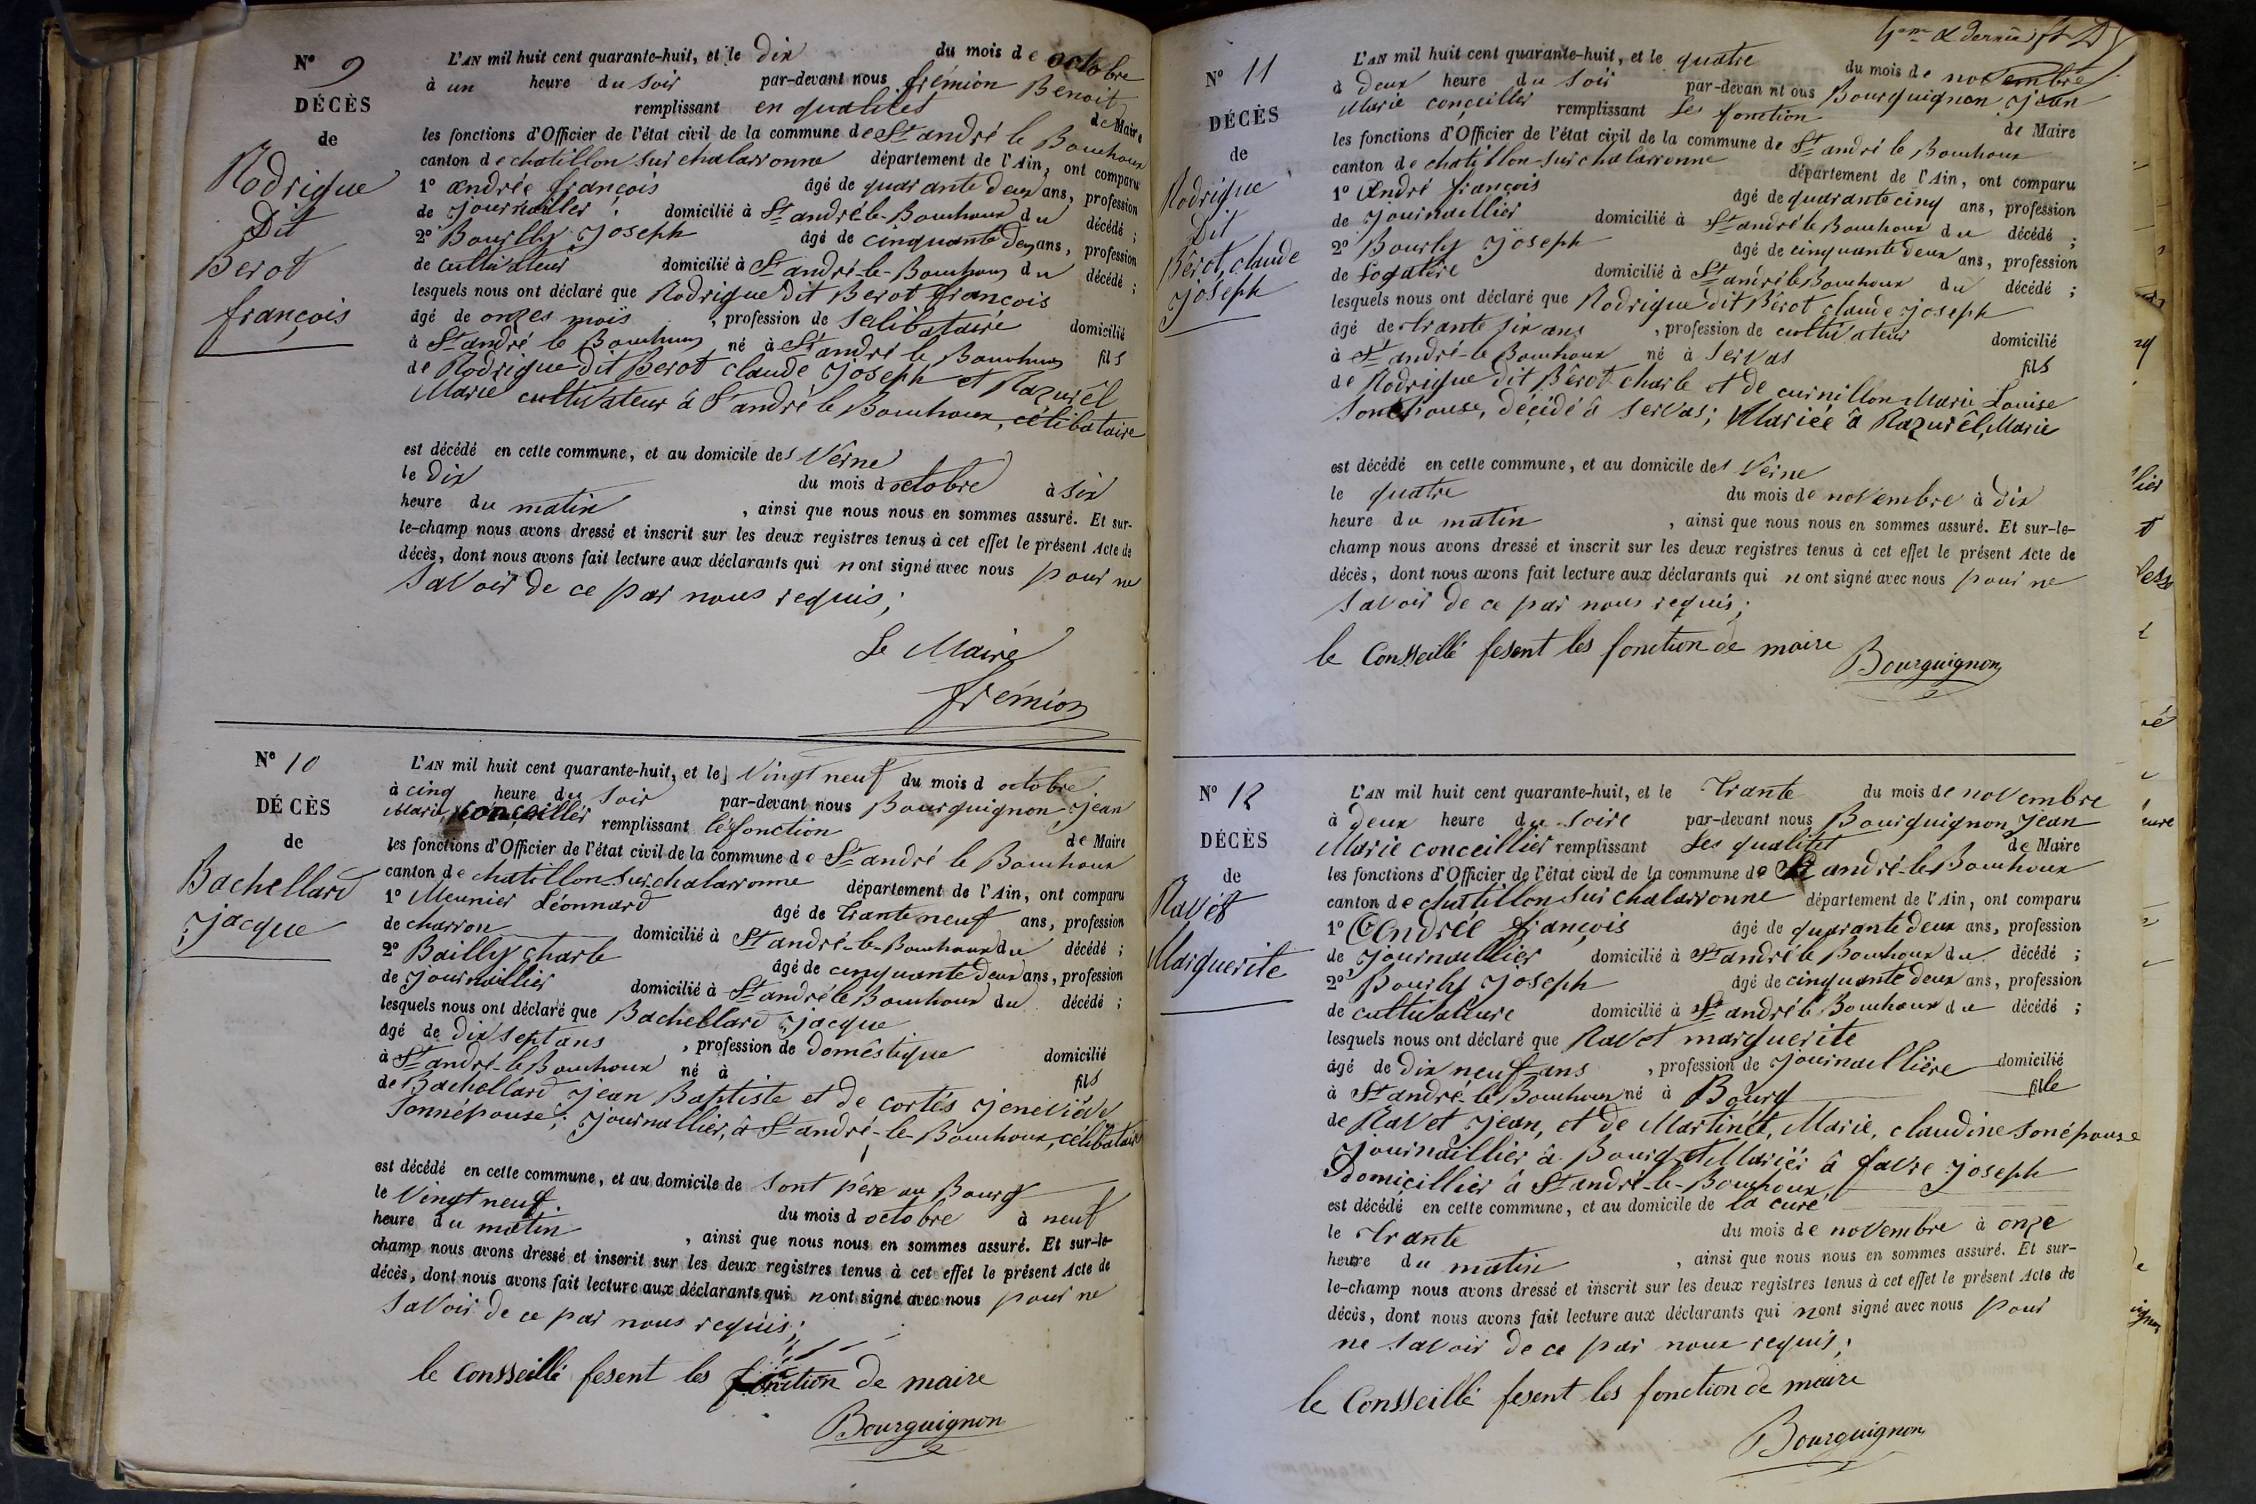 N° 9
DÉCÈS
de
Rodrigue
Dit
Berot
françois
L'AN mil huit cent quarante-huit, et le dix du mois de octobre
à un heure du soir par-devant nous frémion Benoit
remplissant en qualités de Maire
les fonctions d'Officier de l'état civil de la commune de St andré le Bouchoux
canton de chatillon sur chalaronne département de l'Ain, ont comparu
1° andrée françois âgé de quarante deux ans, profession
de journailler domicilié à St andré le Bouchoux du décédé ;
2° Bourlly Joseph âgé de cinquante deux ans, profession
de cultivateur domicilié à St andré-le-Bouchoux du décédé ;
lesquels nous ont déclaré que Rodrigue dit Berot françois
âgé de onzes mois , profession de Selibataire domicilié
à St andré le Bouchoux né à St andré le Bouchoux fils
de Rodrigue dit Berot claude Joseph et Razurêl
Marie cultivateur à St andré le Bouchoux, célibataire
est décédé en cette commune, et au domicile des Verne
le dix du mois d octobre à six
heure du matin , ainsi que nous nous en sommes assuré. Et sur-
le-champ nous avons dressé et inscrit sur les deux registres tenus à cet effet le présent Acte de
décès, dont nous avons fait lecture aux déclarants qui n ont signé avec nous pour ne
savoir de ce par nous requis ;
Le Maire
frémion
N° 10
DÉCÈS
de
Bachellard
Jacque
L'AN mil huit cent quarante-huit, et le Vingt neuf du mois d octobre
à cinq heure du soir par-devant nous Bourguignon Jean
Marie conceiller remplissant lé fonction de Maire
les fonctions d'Officier de l'état civil de la commune de St andré le Bouchoux
canton de chatillon sur chalaronne département de l'Ain, ont comparu
1° Meunier Léonnard âgé de Trante neuf ans, profession
de charron domicilié à St andré-le-Bouchoux du décédé ;
2° Bailly charle âgé de cinquante deux ans, profession
de journaillier domicilié à St andré le Bouchoux du décédé ;
lesquels nous ont déclaré que Bachellard Jacque
âgé de dix sept ans , profession de domêstique domicilié
à St andré-le-Bouchoux né à fils
de Bachellard Jean Baptiste et de cortés Jeneviève
Sonnépouse ; Journallier, à St andré-le-Bouchoux, célibataire
est décédé en cette commune, et au domicile de sont père au Bourg
le Vingt neuf du mois d octobre à neuf
heure du matin , ainsi que nous nous en sommes assuré. Et sur-le-
champ nous avons dressé et inscrit sur les deux registres tenus à cet effet le présent Acte de
décès, dont nous avons fait lecture aux déclarants qui n ont signé avec nous pour ne
savoir de ce par nous requis ;
le Consseillé fesent les fonction de maire
Bourguignon
N° 11
DÉCÈS
de
Rodrigue
Dit
Bêrot, claude
Joseph
L'AN mil huit cent quarante-huit, et le quatre du mois de novembre
à deux heure du soir par-devan nt ous Bourguignon Jean
Marie conçeiller remplissant Les fonction de Maire
les fonctions d'Officier de l'état civil de la commune de St andré le Bouchoux
canton de chatillon-sur chalaronne département de l'Ain, ont comparu
1° André françois âgé de quarante cinq ans, profession
de journaillier domicilié à St andré le Bouchoux du décédé ;
2° Bourly Joseph âgé de cinquante deux ans, profession
de domicilié à St andré le Bouchoux du décédé ;
lesquels nous ont déclaré que Rodrigue dit Bêrot claude Joseph
âgé de trante six ans , profession de cultivateur domicilié
à St andré-le Bouchoux né à Servas fils
de Rodrigue dit Bêrot charle et de curnillon Marie Louise
sonépouse, décédé à Servas ; Mariéé à Razurêl, Marie
est décédé en cette commune, et au domicile des Vêrne
le quatre du mois de novembre à dix
heure du matin , ainsi que nous nous en sommes assuré. Et sur-le-
champ nous avons dressé et inscrit sur les deux registres tenus à cet effet le présent Acte de
décès, dont nous avons fait lecture aux déclarants qui n ont signé avec nous pour ne
savoir de ce par nous requis ;
le Consseillé fesent les fonction de maire
Bourguignon
N° 12
DÉCÈS
de
Ravet
Marguerite
L'AN mil huit cent quarante-huit, et le Trante du mois de novembre
à deux heure du soire par-devant nous Bourguignon Jean
Marie conceillier remplissant Les qualitet de Maire
les fonctions d'Officier de l'état civil de la commune de St andré-le-Bouchoux
canton de chatillon sur chalaronne département de l'Ain, ont comparu
1° Andrée françois âgé de quarante deux ans, profession
de journaillier domicilié à St andré le Bouchoux du décédé ;
2° Bourly Joseph âgé de cinquante deux ans, profession
de cultivateure domicilié à St andré le Bouchoux du décédé ;
lesquels nous ont déclaré que Ravet marguerite
âgé de dix neuf ans , profession de journaillière domicilié
à St andré-le Bouchoux né à Bourg fille
de Ravet Jean, et de Martinêt, Marie, claudine sonépouse
Journaillier à Bourg, et Mariér à favre Joseph
Domicillier à St andré-le-Bouchoux,
est décédé en cette commune, et au domicile de la cure
le Trante du mois de novembre à onze
heure du matin , ainsi que nous nous en sommes assuré. Et sur-
le-champ nous avons dressé et inscrit sur les deux registres tenus à cet effet le présent Acte de
décès, dont nous avons fait lecture aux déclarants qui n ont signé avec nous pour
ne savoir de ce par nous requis ;
le Consseillé fesent les fonction de maire
Bourguignon